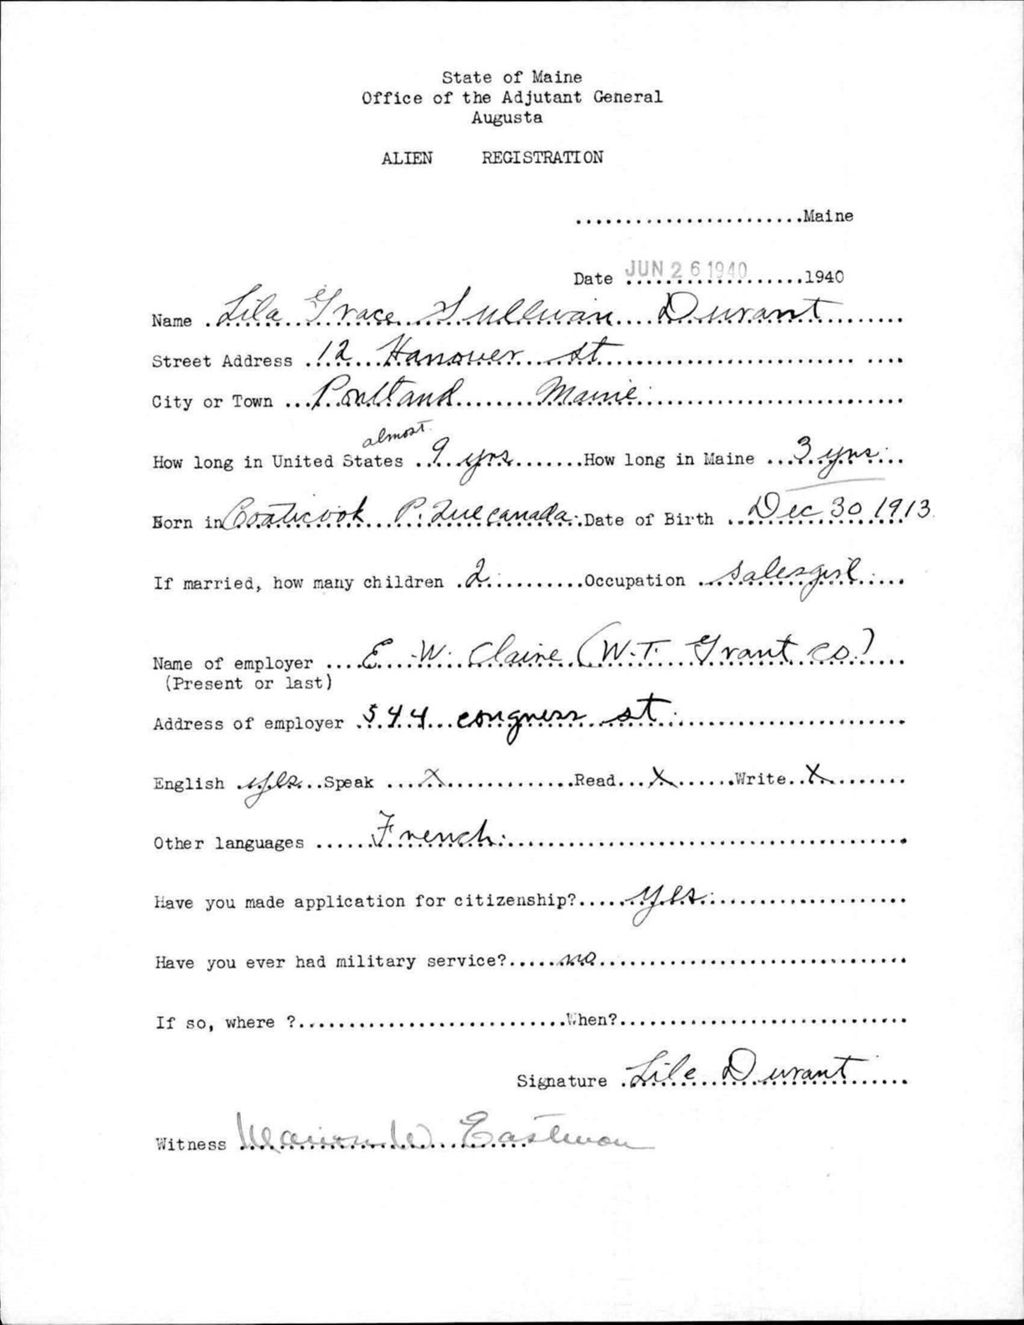 State of Maine
Office of the Adjutant General
Augusta
ALIEN REGISTRATION
.......................Maine
Date JUN 26 1940 ......1940
Name Lila Grace Sullivan Durant
Street Address 12 Hanover st
City or Town Portland Maine
almost
How long in United States 9 yrs How long in Maine 3 yrs
Born in Coaticook P. Que canada Date of Birth Dec 30 1913
If married, how many children 2 Occupation salesgirl
Name of employer E. W. Claire (W.T. Grant co.)
(Present or last)
Address of employer 544 congress st.
English yes Speak X Read X Write X
Other languages French.
Have you made application for citizenship? yes.
Have you ever had military service? no
If so, where ? When?
Signature Lile Durant
Witness Marion W Eastman